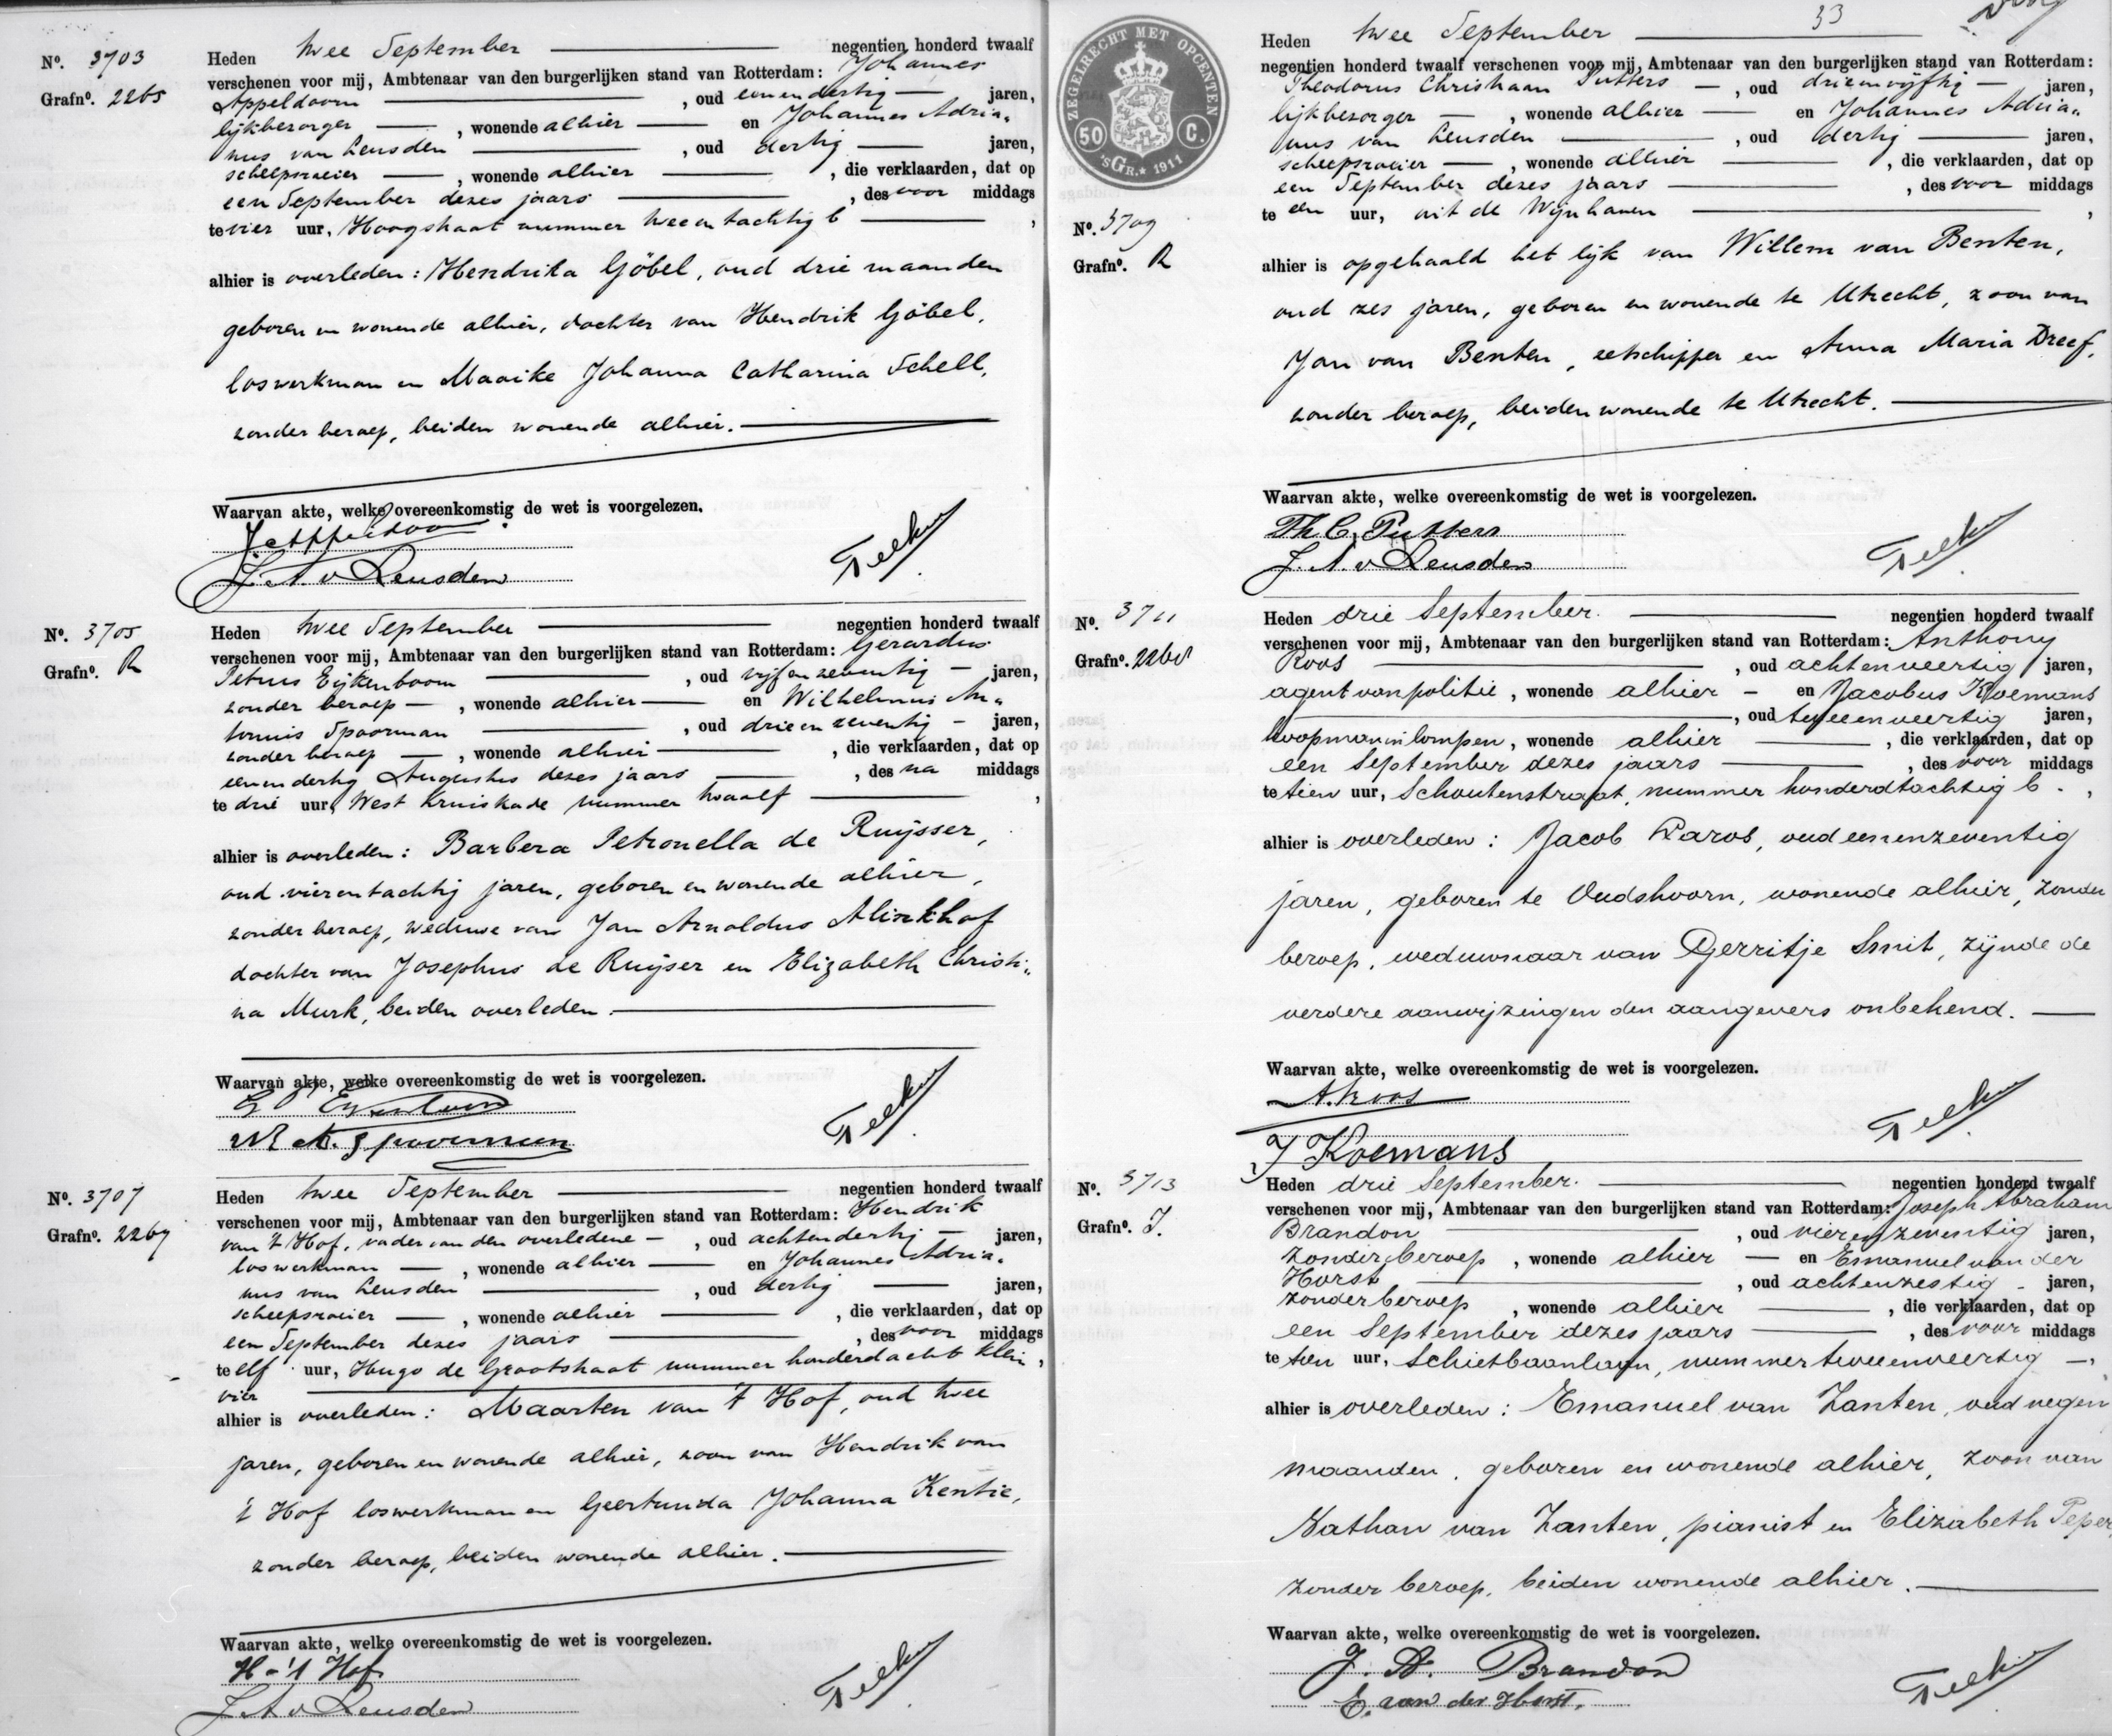 Nº. 3703
Grafnº. 2265
Heden twee September negentien honderd twaalf
verschenen voor mij, Ambtenaar van den burgerlijken stand van Rotterdam: Johannes
Appeldoorn , oud eenendertig jaren,
lijkbezorger , wonende alhier en Johannes Adria„
nus van Leusden , oud dertig jaren,
scheepsroeier , wonende alhier , die verklaarden, dat op
een September dezes jaars , des voor middags
te vier uur, Hoogstraat nummer twee en tachtig b ,
alhier is overleden: Hendrika Göbel, oud drie maanden
geboren en wonende alhier, dochter van Hendrik Göbel,
loswerkman en Maaike Johanna Catharina Schell,
zonder beroep, beiden wonende alhier.
Waarvan akte, welke overeenkomstig de wet is voorgelezen.
J. Appeldoorn
J. A. v Leusden
Nº. 3705
Grafnº. R
Heden twee September negentien honderd twaalf
verschenen voor mij, Ambtenaar van den burgerlijken stand van Rotterdam: Gerardus
Petrus Eijkenboom , oud vijf en zeventig jaren,
zonder beroep , wonende alhier en Wilhelmus An„
tonius Spoorman , oud drie en zeventig jaren,
zonder beroep , wonende alhier , die verklaarden, dat op
eenendertig Augustus dezes jaars , des na middags
te drie uur, West Kruiskade nummer twaalf ,
alhier is overleden: Barbera Petronella de Ruijsser,
oud vierentachtig jaren, geboren en wonende alhier,
zonder beroep, weduwe van Jan Arnoldus Alinkhof
dochter van Josephus de Ruijser en Elizabeth Christi„
na Murk, beiden overleden.
Waarvan akte, welke overeenkomstig de wet is voorgelezen.
W. A. Spoorman
Nº. 3707
Grafnº. 2267
Heden twee September negentien honderd twaalf
verschenen voor mij, Ambtenaar van den burgerlijken stand van Rotterdam: Hendrik
van 't Hof, vader van den overledene , oud achtendertig jaren,
loswerkman , wonende alhier en Johannes Adria„
nus van Leusden , oud dertig jaren,
scheepsroeier , wonende alhier , die verklaarden, dat op
een September dezes jaars , des voor middags
te elf uur, Hugo de Grootstraat nummer honderdacht klein ,
vier
alhier is overleden: Maarten van 't Hof, oud twee
jaren, geboren en wonende alhier, zoon van Hendrik van
't Hof loswerkman en Geertruida Johanna Kentie,
zonder beroep, beiden wonende alhier.
Waarvan akte, welke overeenkomstig de wet is voorgelezen.
H v 't Hof
J. A v Leusden
33
ZEGELRECHT MET OPCENTEN
50 C.
'sGR. 1911
Nº. 3709
Grafnº. R
Heden twee September
negentien honderd twaalf verschenen voor mij, Ambtenaar van den burgerlijken stand van Rotterdam:
Theodorus Christiaan Putters , oud drieenvijftig jaren,
lijkbezorger , wonende alhier en Johannes Adria„
nus van Leusden , oud dertig jaren,
scheepsroeier , wonende alhier , die verklaarden, dat op
een September dezes jaars , des voor middags
te een uur, uit de Wijnhaven ,
alhier is opgehaald het lijk van Willem van Benten,
oud zes jaren, geboren en wonende te Utrecht, zoon van
Jan van Benten, zetschipper en Anna Maria Dreef,
zonder beroep, beiden wonende te Utrecht.
Waarvan akte, welke overeenkomstig de wet is voorgelezen.
Th C. Putters
J. A. v Leusden
Nº. 3711
Grafnº. 2268
Heden drie September. negentien honderd twaalf
verschenen voor mij, Ambtenaar van den burgerlijken stand van Rotterdam: Anthony
Roos , oud achtenveertig jaren,
agent van politie , wonende alhier en Jacobus Koemans
, oud tweeenveertig jaren,
koopman in lompen , wonende alhier , die verklaarden, dat op
een September dezes jaars , des voor middags
te tien uur, Schoutenstraat, nummer honderdtachtig b. ,
alhier is overleden: Jacob Paros, oud eenenzeventig
jaren, geboren te Oudshoorn, wonende alhier, zonder
beroep, weduwnaar van Gerritje Smit, zijnde de
verdere aanwijzingen den aangevers onbekend.
Waarvan akte, welke overeenkomstig de wet is voorgelezen.
A. Roos
J Koemans
Nº. 3713
Grafnº. J.
Heden drie September. negentien honderd twaalf
verschenen voor mij, Ambtenaar van den burgerlijken stand van Rotterdam: Joseph Abraham
Brandon , oud vierenzeventig jaren,
zonder beroep , wonende alhier en Emanuel van der
Horst , oud achtenzestig jaren,
zonder beroep , wonende alhier , die verklaarden, dat op
een September dezes jaars , des voor middags
te tien uur, Schietbaanlaan, nummer tweeenveertig ,
alhier is overleden: Emanuel van Zanten, oud negen
maanden, geboren en wonende alhier, zoon van
Nathan van Zanten, pianist en Elizabeth Peper,
zonder beroep, beiden wonende alhier.
Waarvan akte, welke overeenkomstig de wet is voorgelezen.
J. A. Brandon
E. van der Horst.